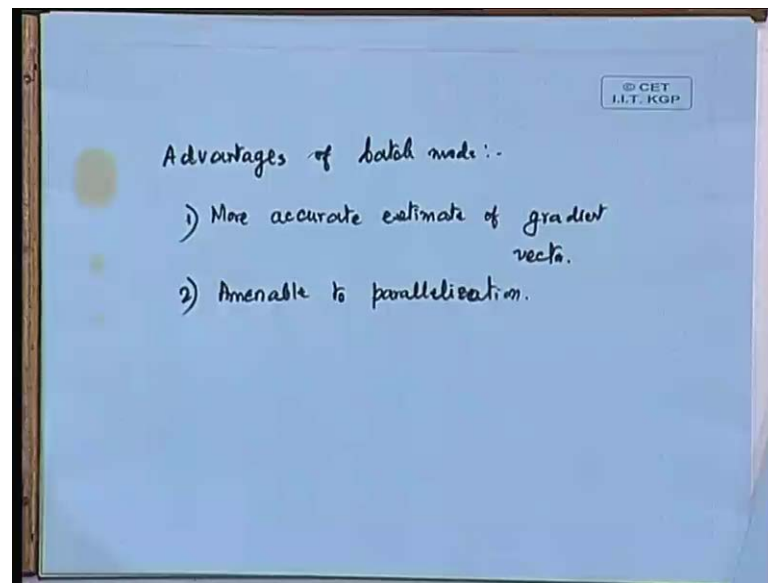 © CET
I.I.T. KGP
Advantages of batch mode:-
1) More accurate estimate of gradient
vector.
2) Amenable to parallelization.